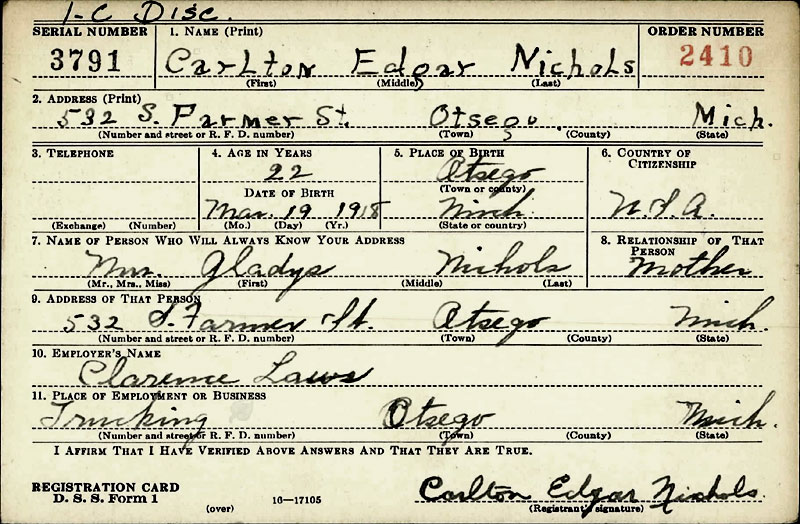 1-C Disc.
SERIAL NUMBER 1. NAME (Print) ORDER NUMBER
3791 Carlton Edgar Nichols 2410
(First) (Middle) (Last)
2. ADDRESS (Print)
532 S. Farmer St. Otsego Mich.
(Number and street or R. F. D. number) (Town) (County) (State)
3. TELEPHONE 4. AGE IN YEARS 5. PLACE OF BIRTH 6. COUNTRY OF CITIZENSHIP
22 Otsego
DATE OF BIRTH (Town or county)
Mar. 19 1918 Mich. U.S.A.
(Exchange) (Number) (Mo.) (Day) (Yr.) (State or country)
7. NAME OF PERSON WHO WILL ALWAYS KNOW YOUR ADDRESS 8. RELATIONSHIP OF THAT PERSON
Mrs. Gladys Nichols Mother
(Mr., Mrs., Miss) (First) (Middle) (Last)
9. ADDRESS OF THAT PERSON
532 S. Farmer St. Otsego Mich.
(Number and street or R. F. D. number) (Town) (County) (State)
10. EMPLOYER'S NAME
Clarence Laws
11. PLACE OF EMPLOYMENT OR BUSINESS
Trucking Otsego Mich.
(Number and street or R. F. D. number) (Town) (County) (State)
I AFFIRM THAT I HAVE VERIFIED ABOVE ANSWERS AND THAT THEY ARE TRUE.
REGISTRATION CARD Carlton Edgar Nichols
D. S. S. Form 1 (over) 16—17105 (Registrant's signature)